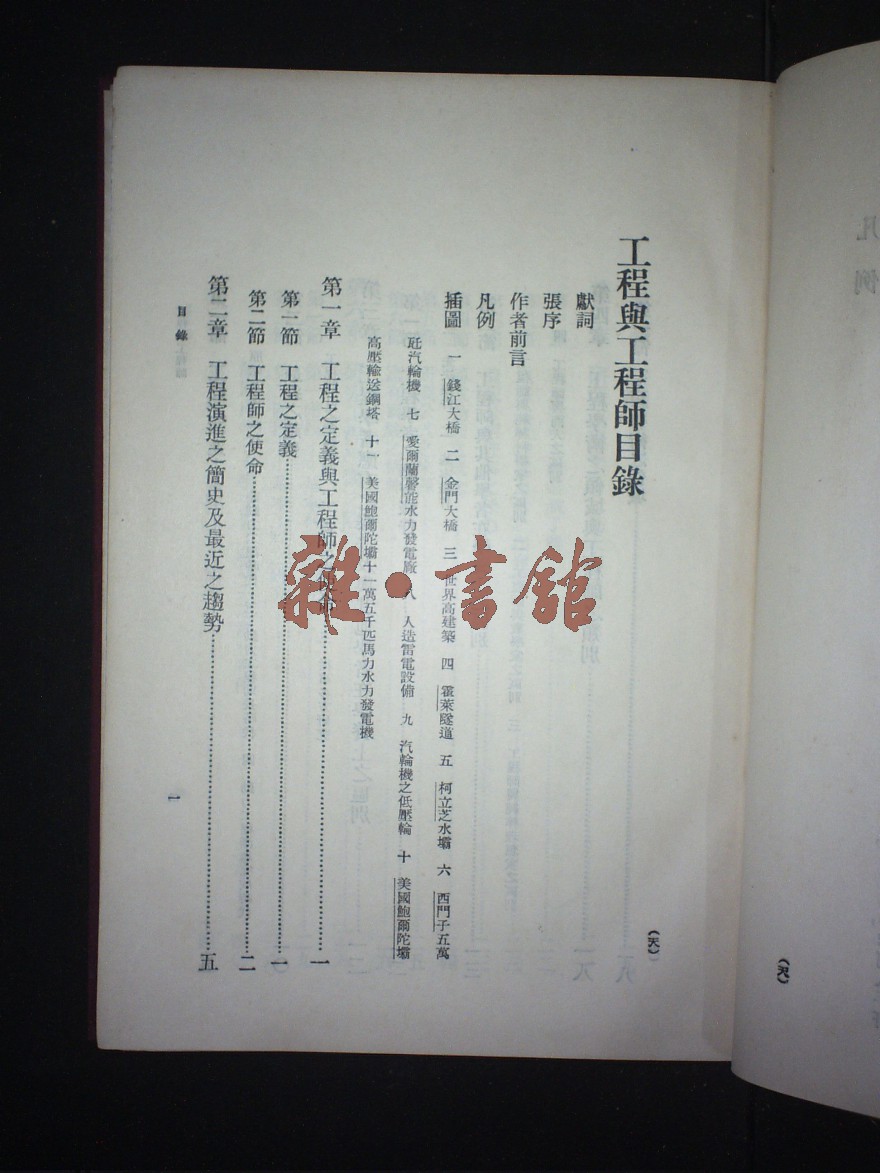 工程與工程師目錄
獻詞
張序
作者前言
凡例
插圖 一 錢江大橋 二 金門大橋 三 世界高建築 四 霍萊隧道 五 柯立芝水壩 六 西門子五萬
瓩汽輪機 七 愛爾蘭聲能水力發電廠 八 人造雷電設備 九 汽輪機之低壓輪 十 美國鮑爾陀壩
高壓輸送鋼塔 十一 美國鮑爾陀壩十一萬五千匹馬力水力發電機
第一章 工程之定義與工程師之使命……一
第一節 工程之定義……一
第二節 工程師之使命……二
第二章 工程演進之簡史及最近之趨勢……五
目錄
一
凡例
雜·書館